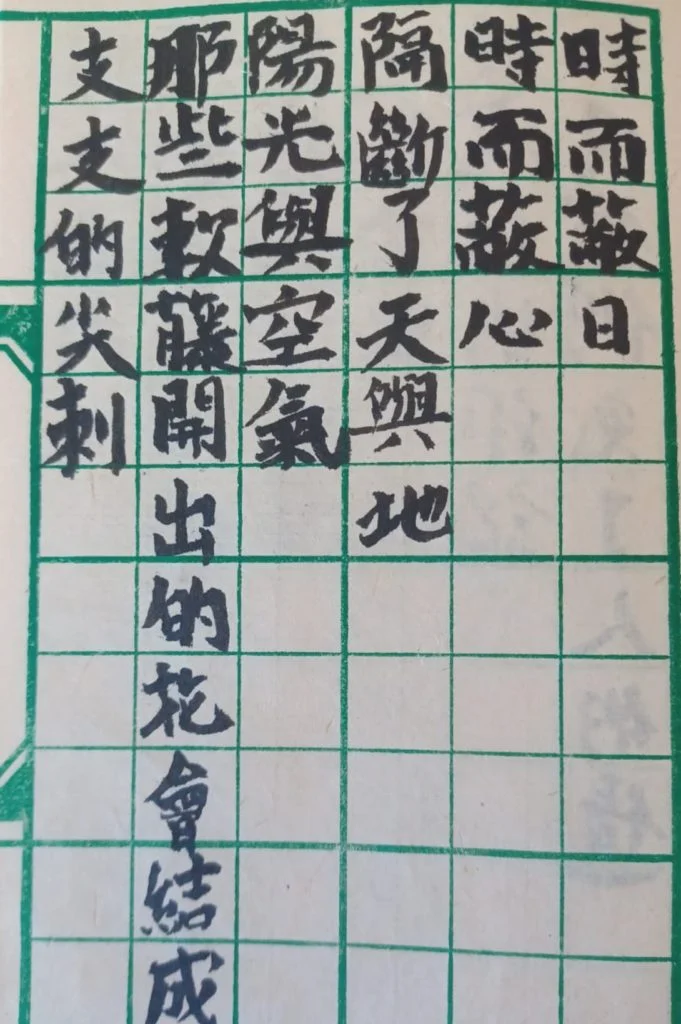 時而蔽日
時而蔽心
隔斷了天與地
陽光與空氣
那些軟藤開出的花會結成
支支的尖刺